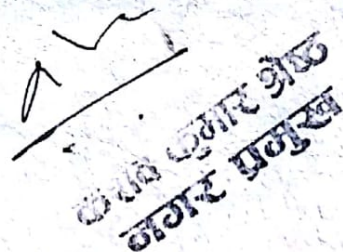 कुमार श्रेष्ठ
नगर प्रमुख